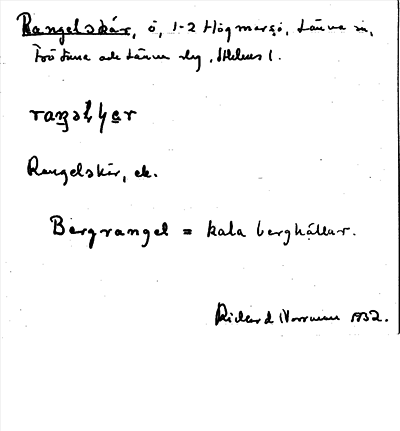 Rangelskär, ö, 1-2 Högmarsö, Länna sn,
Frötuna och Länna slg, Sthlms l.
Rangelskär, ek.
Bergrangel = kala berghällar.
Rickard Norrman 1932.